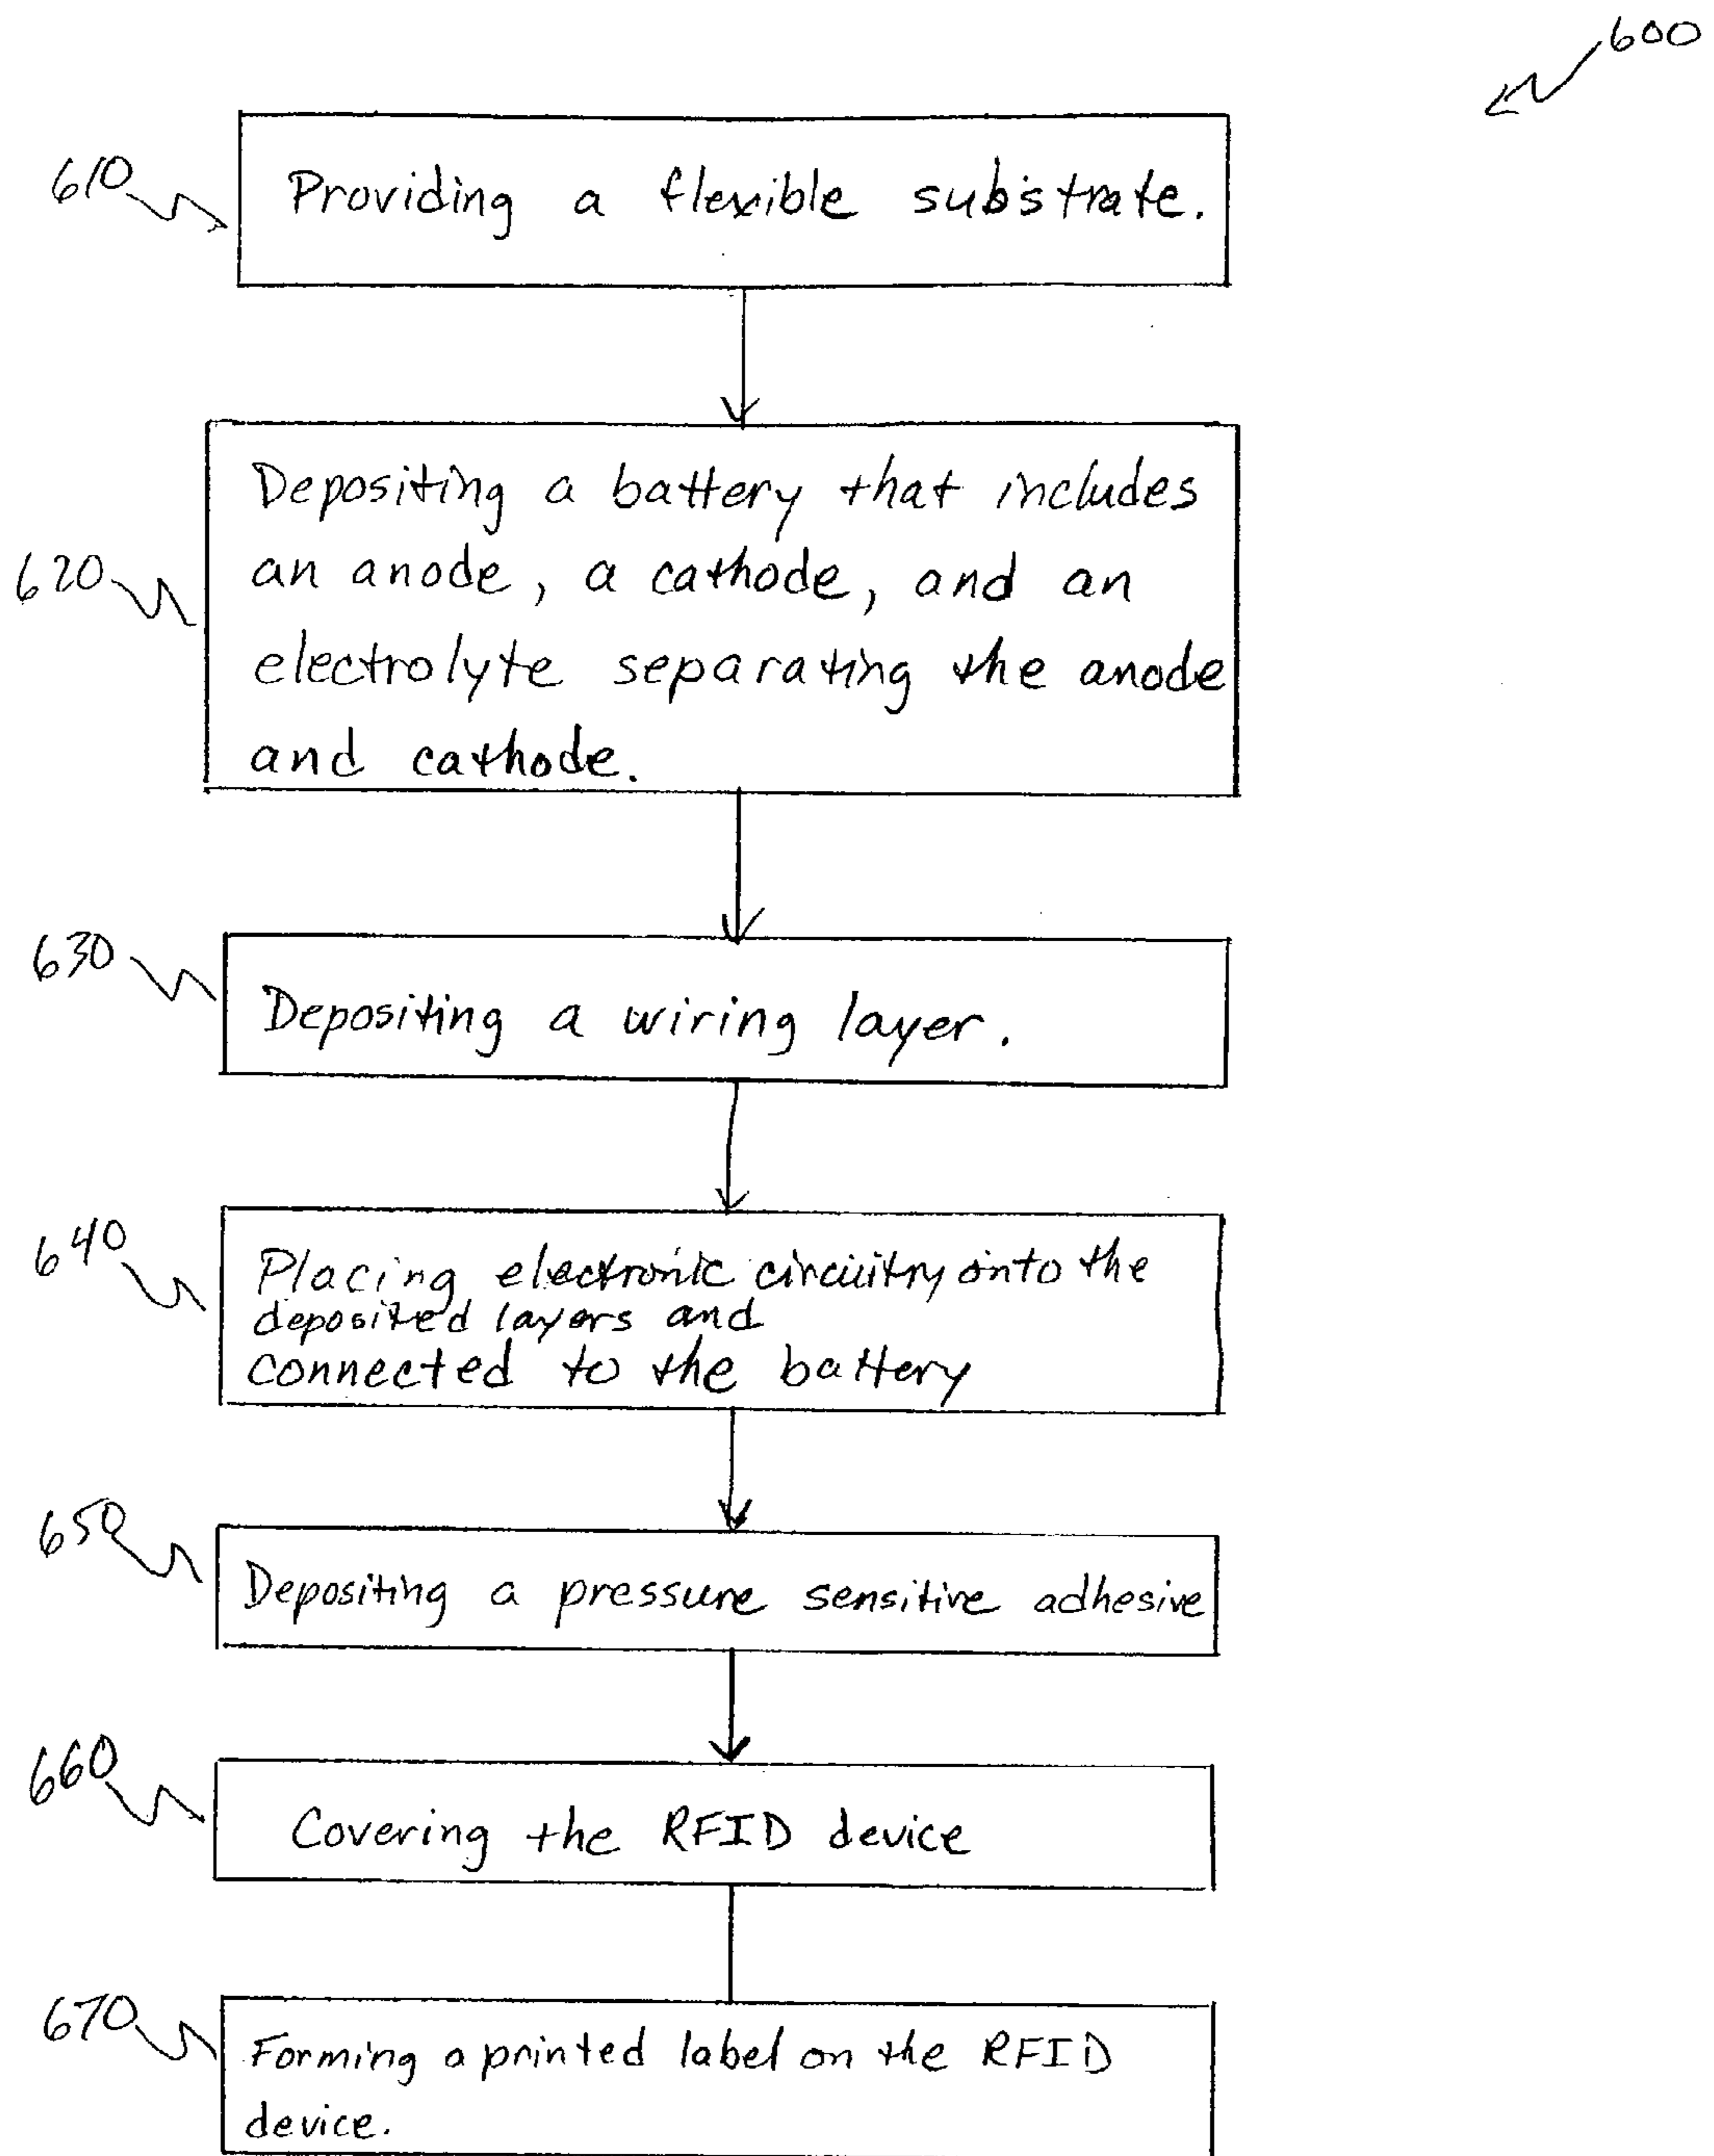 600
610
Providing a flexible substrate.
620
Depositing a battery that includes
an anode, a cathode, and an
electrolyte separating the anode
and cathode.
630
Depositing a wiring layer.
640
Placing electronic circuitry onto the
deposited layers and
connected to the battery
650
Depositing a pressure sensitive adhesive
660
Covering the RFID device
670
Forming a printed label on the RFID
device.